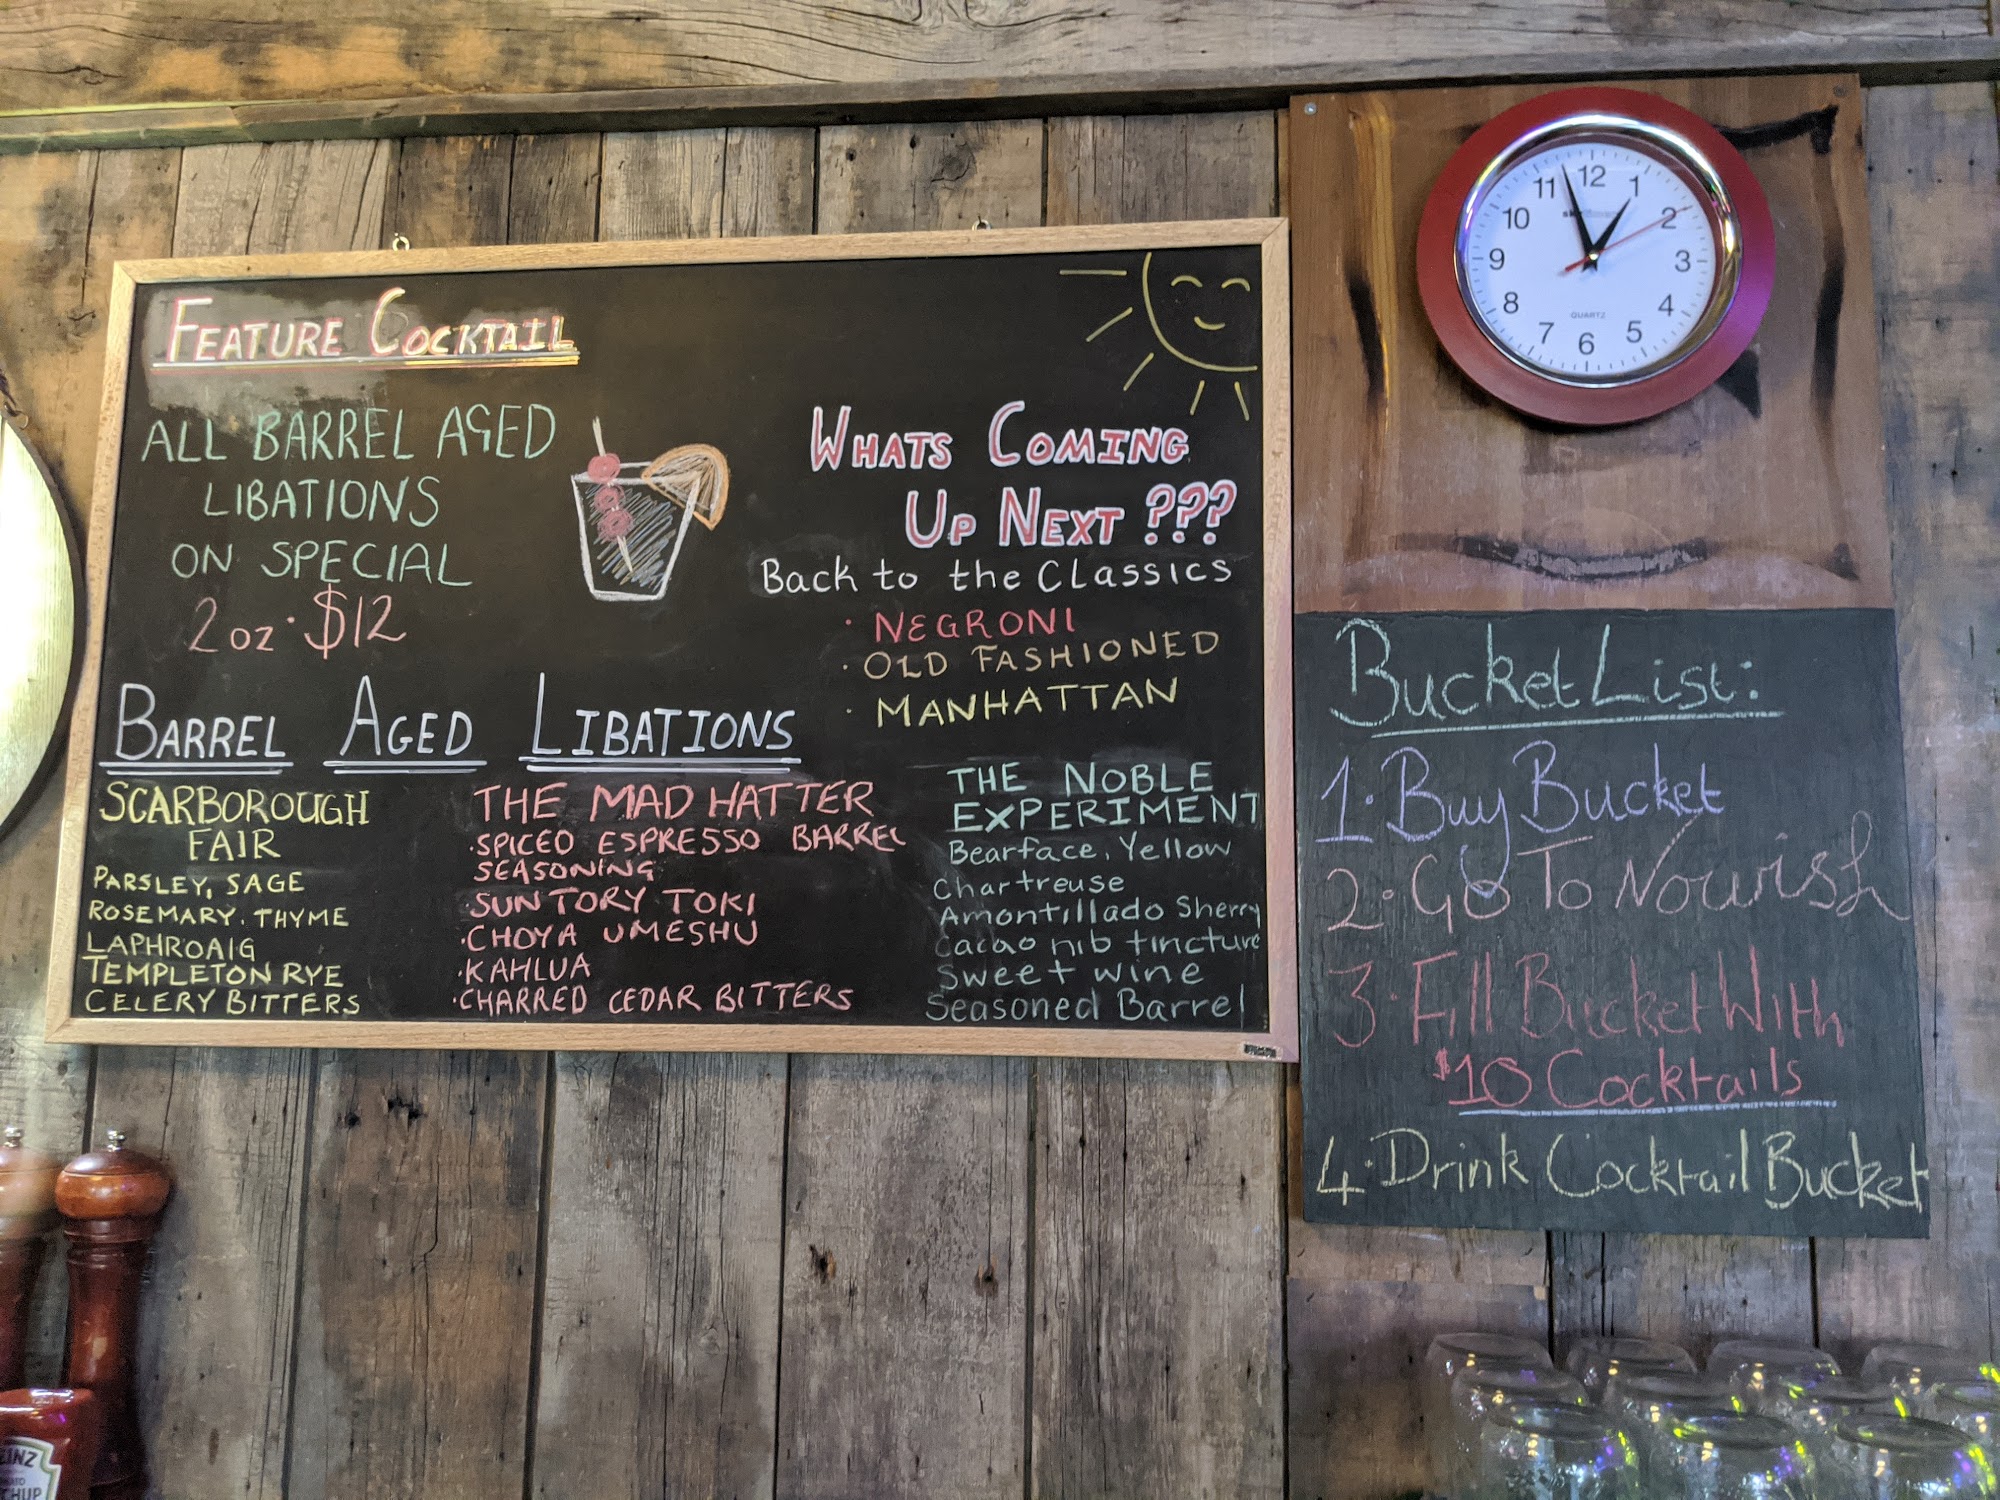 FEATURE COCKTAIL
ALL BARREL AGED
LIBATIONS
ON SPECIAL
2 oz · $12
WHATS COMING
UP NEXT ???
Back to the CLassics
· NEGRONI
· OLD FASHIONED
· MANHATTAN
BARREL AGED LIBATIONS
SCARBOROUGH
FAIR
PARSLEY, SAGE
ROSEMARY. THYME
LAPHROAIG
TEMPLETON RYE
CELERY BITTERS
THE MAD HATTER
·SPICED ESPRESSO BARREL
SEASONING
·SUNTORY TOKI
·CHOYA UMESHU
·KAHLUA
·CHARRED CEDAR BITTERS
THE NOBLE
EXPERIMENT
Bearface, Yellow
Chartreuse
Amontillado Sherry
Cacao nib tincture
Sweet wine
Seasoned Barrel
11 12 1
10 2
9 3
8 4
7 6 5
QUARTZ
Bucket List:
1. Buy Bucket
2. Go To Nourish
3. Fill Bucket With
$10 Cocktails
4. Drink Cocktail Bucket